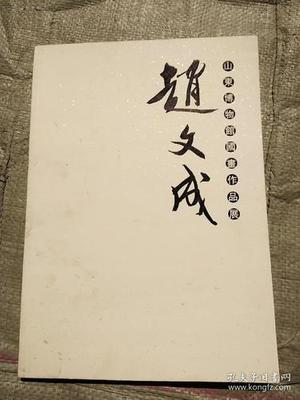 山東博物館國畫作品展
趙文成
孔夫子旧书网
www.kongfz.com